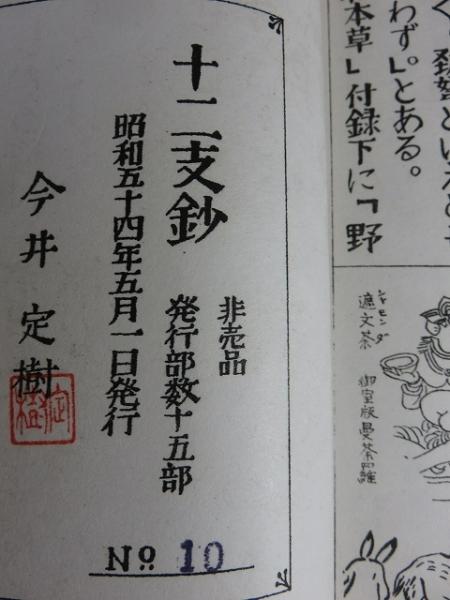 わず。」とある。
本草」付録下に「野
シャモンダ
遮文茶
御室版曼荼羅
十二支鈔
非売品
発行部数十五部
昭和五十四年五月一日発行
今井定樹
定樹
No 10